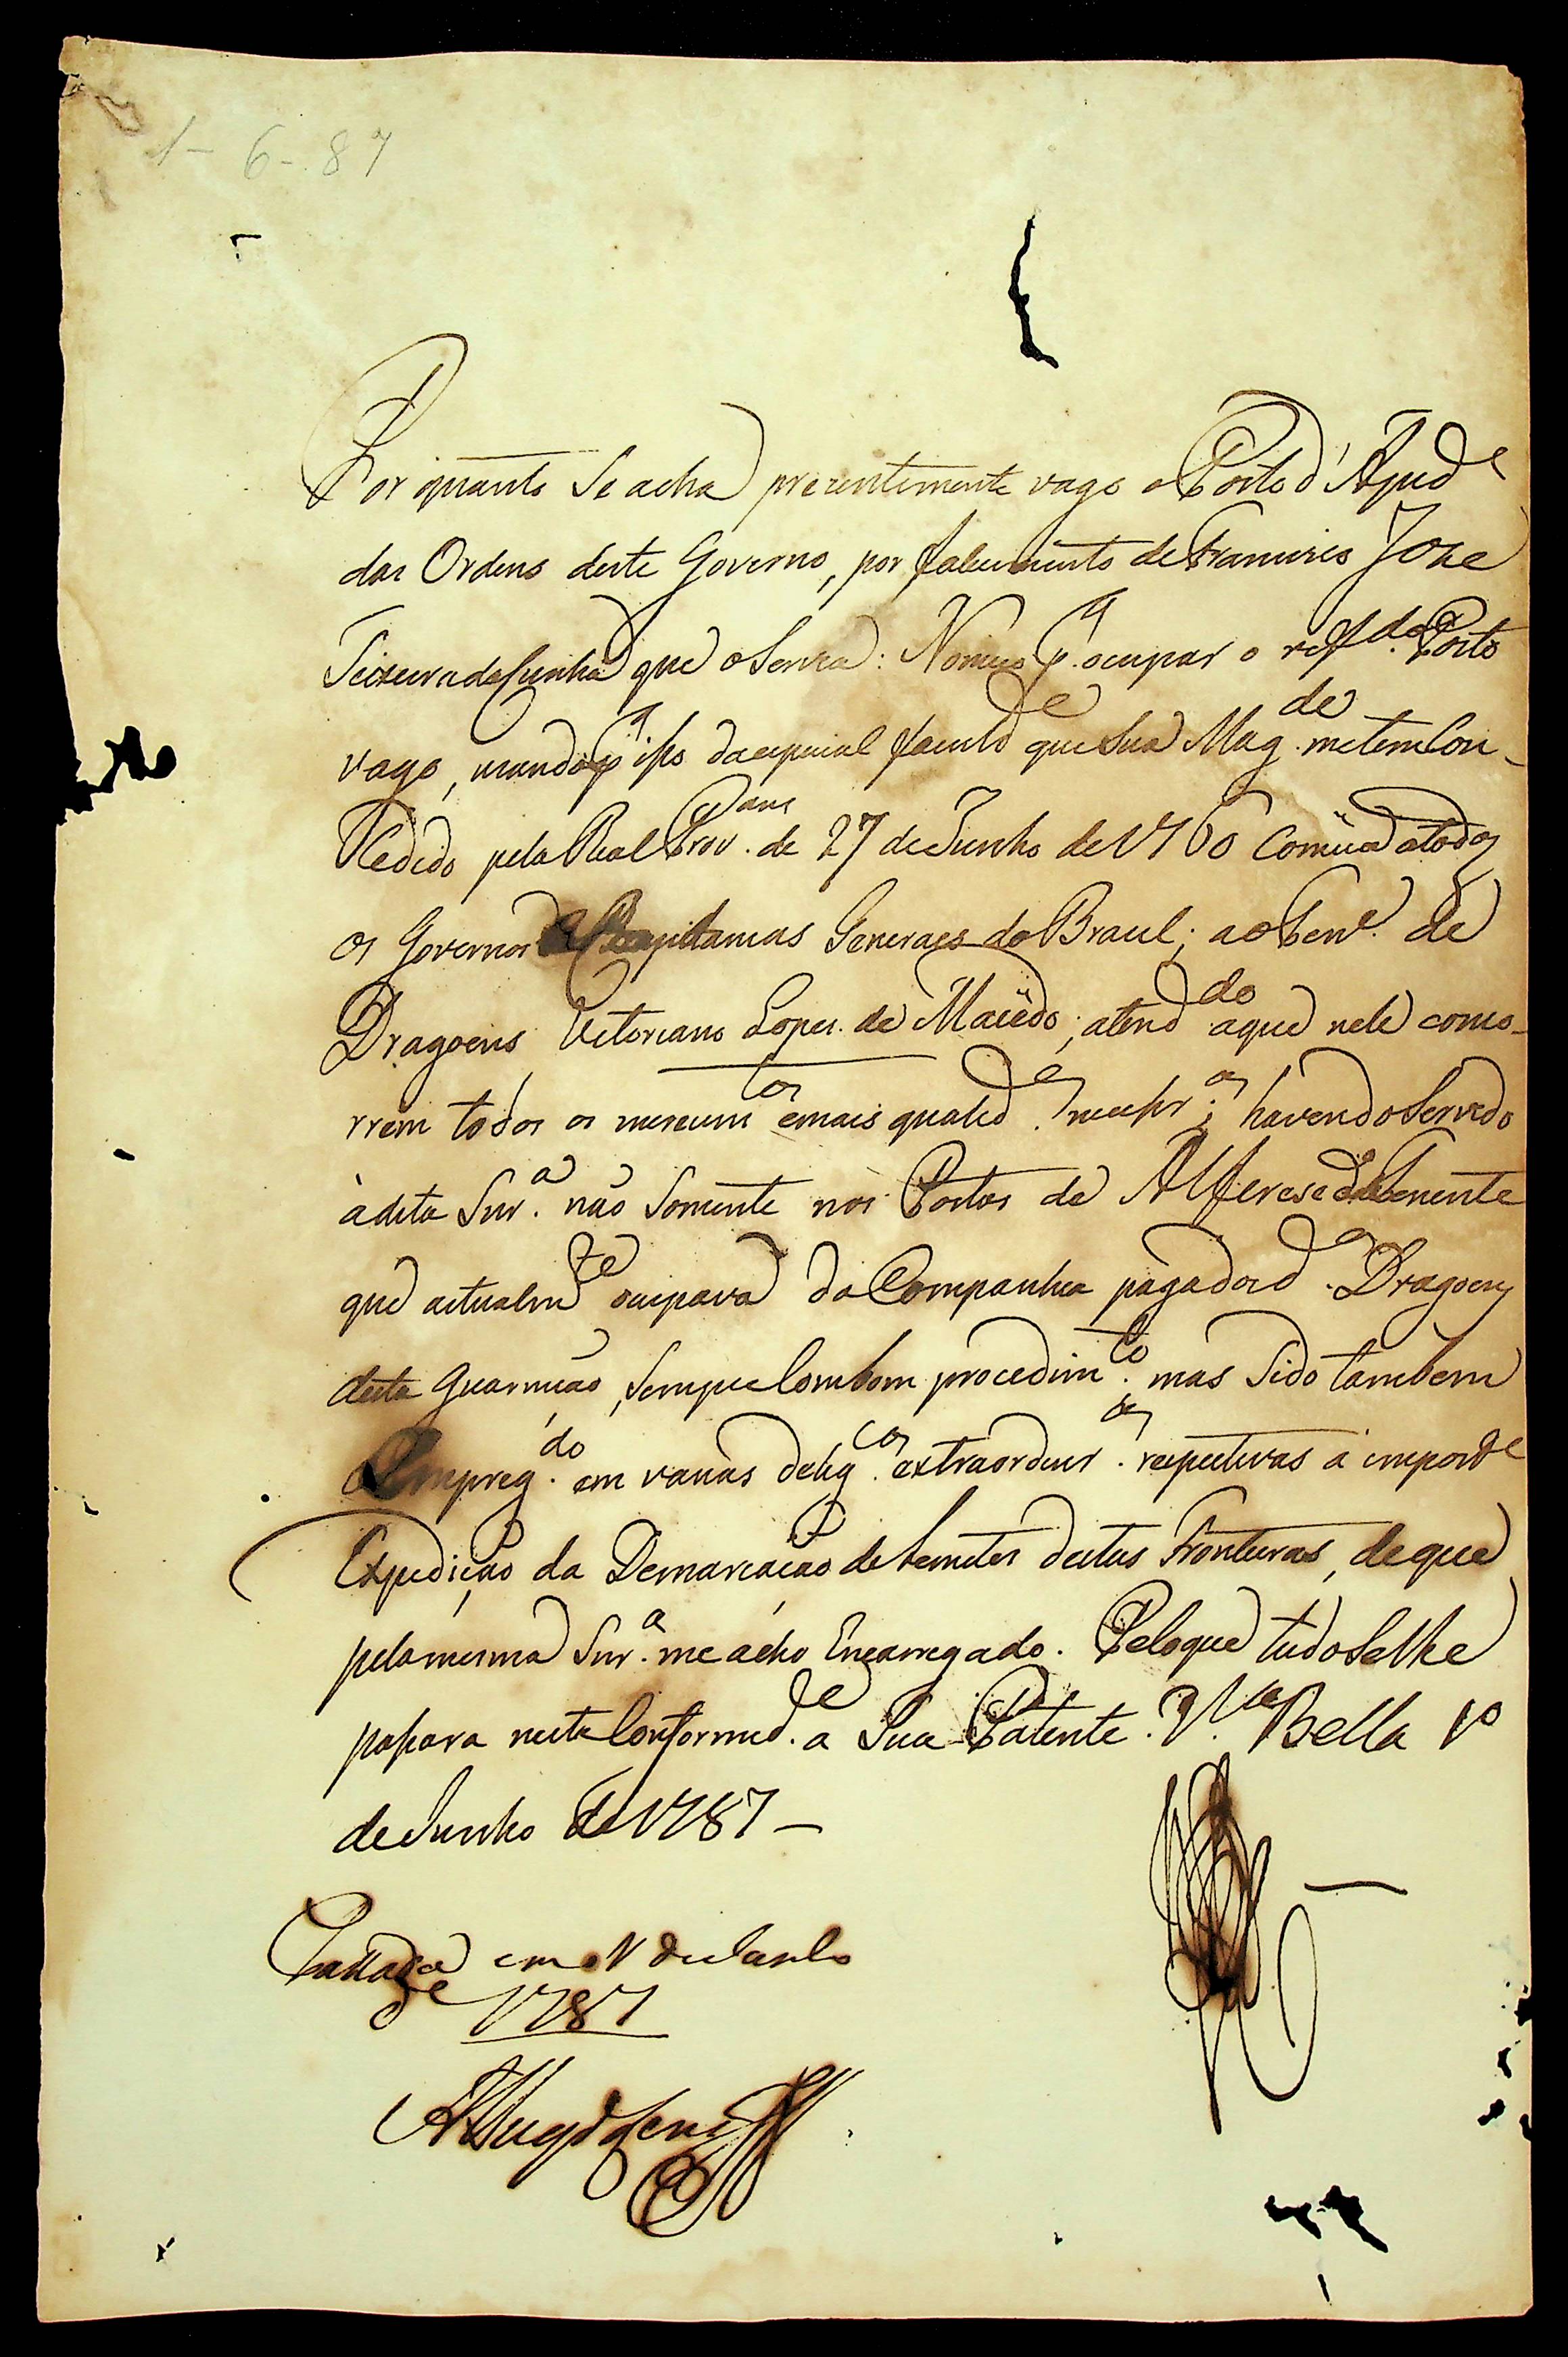 1-6-87
Por quanto Se acha prezentemente vago o Posto d'Ajud.e
das Ordens deste Governo, por falecimento de Francisco Joze
Teixeira da Cunha que o Servia: Nomeio p.a ocupar o refd.o Posto
vago, uzando p.a isso da especial faculd.e que Sua Mag.de me tem Con-
cedido pela Real Prov.am de 27 de Junho de 1760 Comũa a todos
os Governos e Capitanias Generaes do Brazil; ao Ten.e de
Dragoens Vitoriano Lopes de Macedo; atend.do a que nele conco-
rrem todos os merecim.tos e mais qualid.es necessr.as; havendo Servido
à dita Snr.a não Somente nos Postos de Alferes e de Tenente
que actualm.te ocupava da Companhia paga de Dragoens
desta Guarnição, Sempre Com bom procedim.to; mas Sido tambem
Empreg.do em varias delig.cas extraordinr.as respectivas á import.e
Expedição da Demarcação de Lemites destas Fronteiras, de que
pela mesma Snr.a me acho Encarregado. Pelo que tudo Se lhe
passara nesta Conformid.e a Sua Patente. V.a Bella 1º
de Junho de 1787 —
Passada em 1 de Junho
de 1787